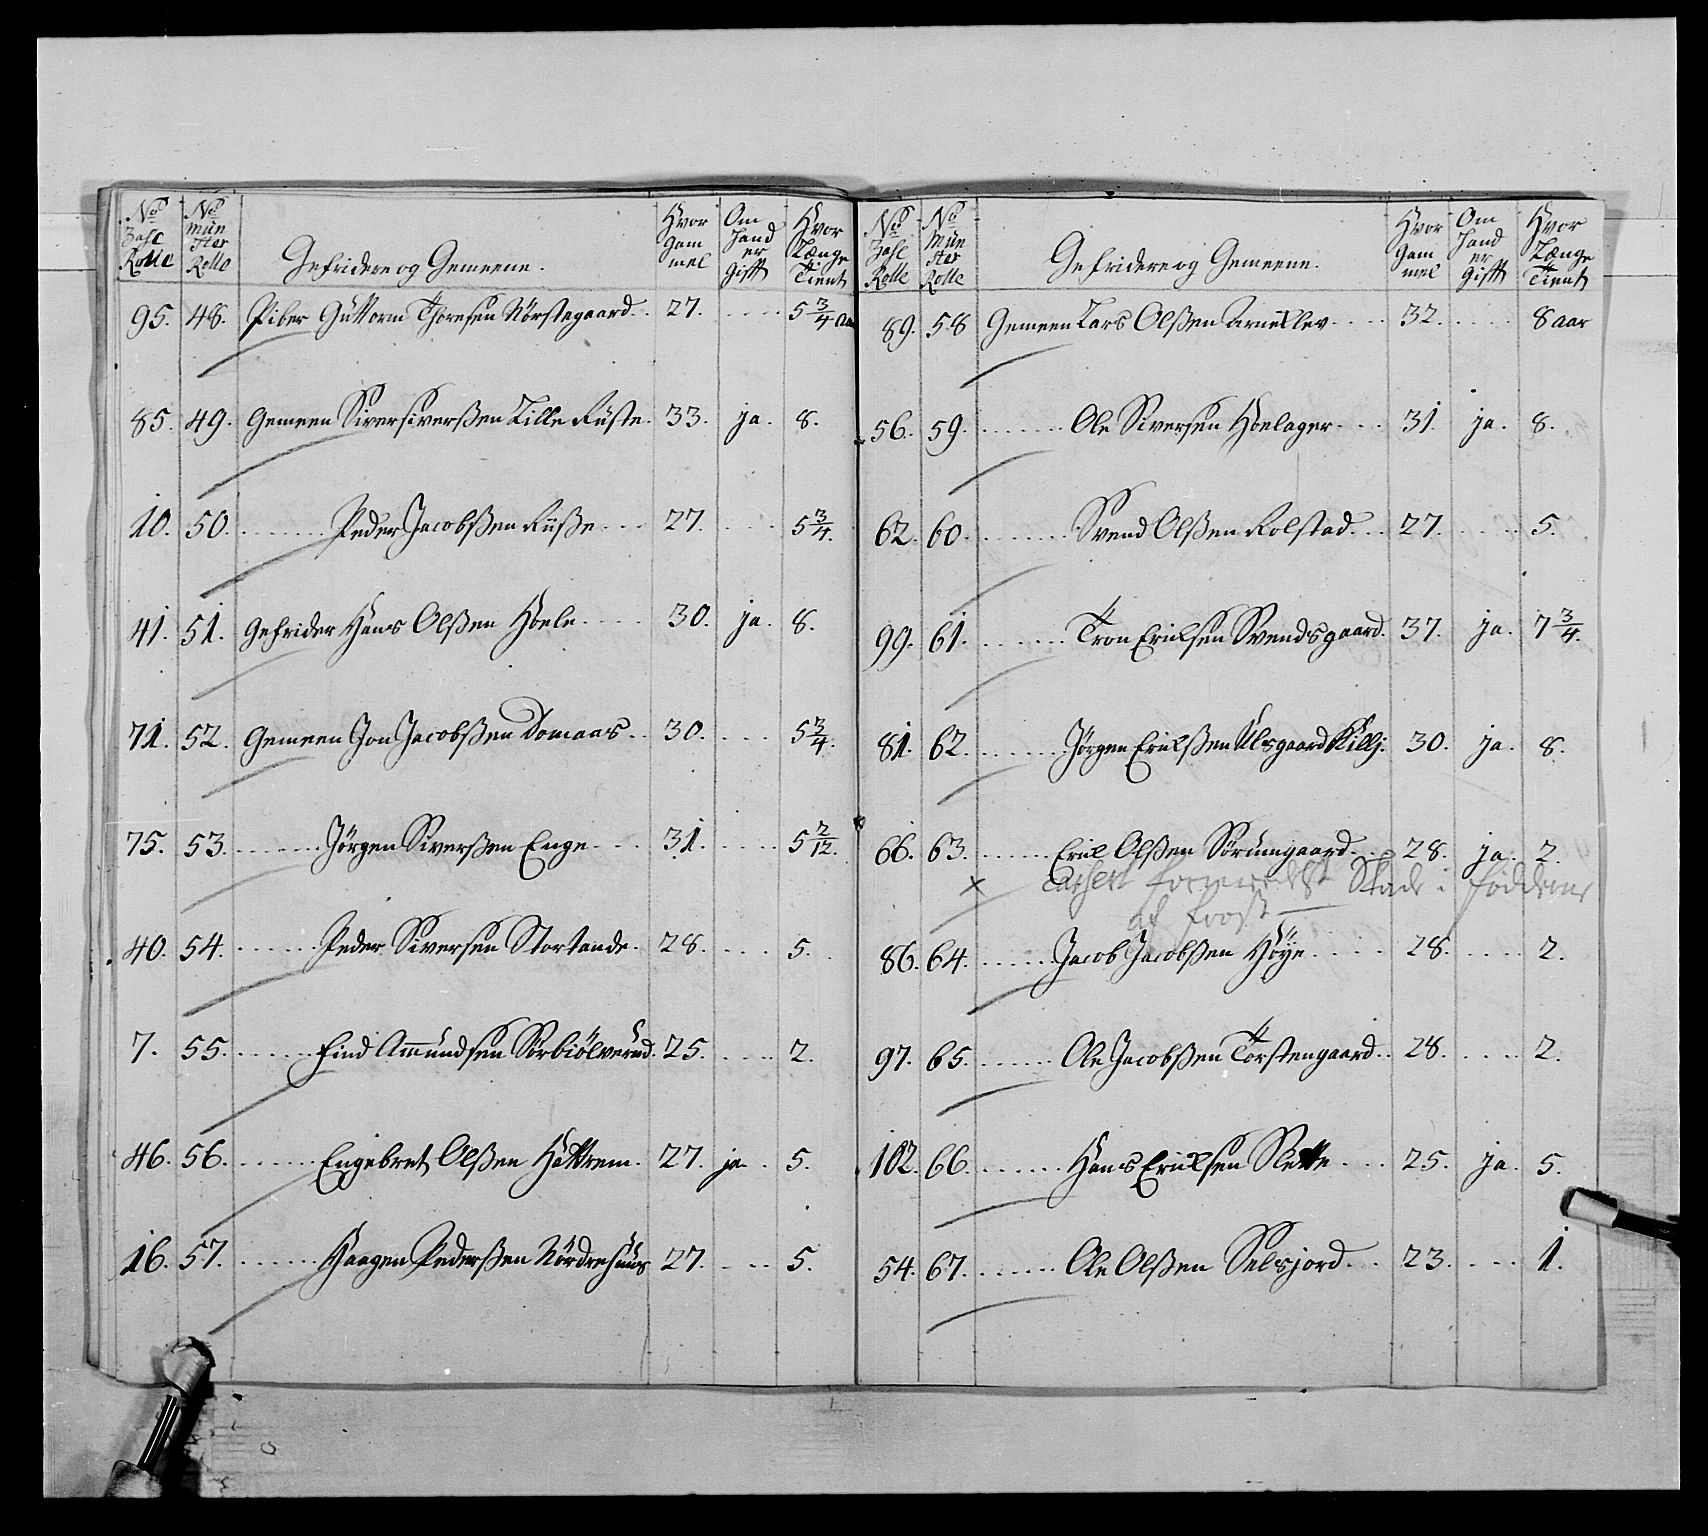 No Zahl Rolle
No Mün ster Rolle
Gefridere og Gemeene.
Hvor Gam mel
Om hand er Gifft
Hvor Længe Tient
95. 48. Piber Guttorm Thoresen Nörstegaard. 27. 5 3/4 aar
85. 49. Gemeen Siver Siverßen Lille Rüste. 33. ja. 8.
10. 50. Peder Jacobßen Rüße 27. 5 3/4.
41. 51. Gefrider Hans Olßen Hoele 30. ja. 8.
71. 52. Gemeen Jon Jacobßen Domaas. 30. 5 3/4.
75. 53. Jörgen Siverßen Enge 31. 5 2/12.
40. 54. Peder Siversen Stortande. 28. 5.
7. 55. Find Amundsen Sörbiölverud. 25. 2.
46. 56. Engebret Olßen Hattrem. 27. ja. 5.
16. 57. Haagen Pederßen Nördrehuus 27. 5.
No Zahl Rolle
No Mün ster Rolle
Gefridere og Gemeene.
Hvor Gam mel
Om hand er Gifft
Hvor Længe Tient
89. 58 Gemeen Lars Olßen Arnellev 32. 8 aar
56. 59. Ole Siversen Hoelager 31. ja. 8.
62. 60. Svend Olßen Rolstad 27. 5.
99. 61. Tron Ericksen Svendsgaard. 37. ja. 7 3/4.
81. 62. Jörgen Erickßen Ulsgaard Killj: 30. ja. 8.
66. 63. Erick Olßen Sörumgaard 28. ja. 2.
x Casert formedelst Skade i föddene
af frost
86. 64. Jacob Jacobßen Höye 28. 2.
97. 65. Ole Jacobßen Torstengaard 28. 2.
102. 66. Hans Ericksen Slette 25. ja. 5.
54. 67. Ole Olßen Selsjord 23. 1.